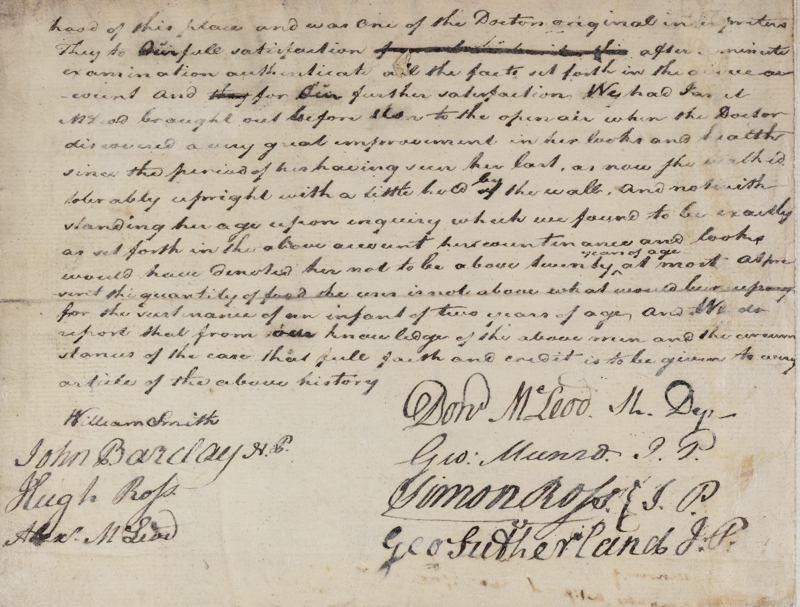 hood of this place and was One of the Doctors original interpreters
They to Our full satisfaction after a minute
examination authenticate all the facts set forth in the above ac-
count And they for Our further satisfaction We had Janet
McLeod brought out before to the open air when the Doctor
discovered a very great improvement in her looks and health
since the period of his having seen her last, as now she walked
tolerably upright with a little hold by the wall. And notwith
standing her age upon enquiry which we found to be exactly
as set forth in the above account her countenance and looks
would have denoted her not to be above twenty years of age at most At pre
sent the quantity of food she uses is not above what would be necessary
for the sustinance of an infant of two years of age, And We do
report that from our knowledge of the above men and the circum
stances of the case that full faith and credit is to be given to every
article of the above history
William Smith
John Barclay N. P.
Hugh Ross
Alexr. McLeod
Dond McLeod. Sh. Dep
Geo: Munro. J. P.
Simon Ross. J. P
Geo Sutherland J. P.